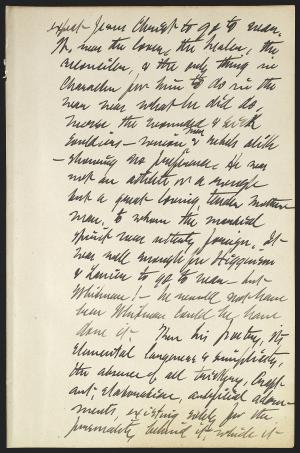 expect Jesus Christ to go to war.
He was the lover, the healer, the
reconciler, & the only thing in
character for him to do in the
war was what he did do,
nurse the wounded & sick
soldiers – union men & rebels alike
– showing no preference. He was
not an athlete or a rough
but a great loving tender mother
man, to whom the martial
spirit was utterly foreign. It
was well enough for Higginson
& Lanier to go to war – but
Whitman! – He would not have
been Whitman could he have
done it. Then his poetry, its
elemental largeness & simplicity,
the absence of all trickery, craft
art, elaboration, artificial adorn-
ments, existing solely for the
personality behind it, while it